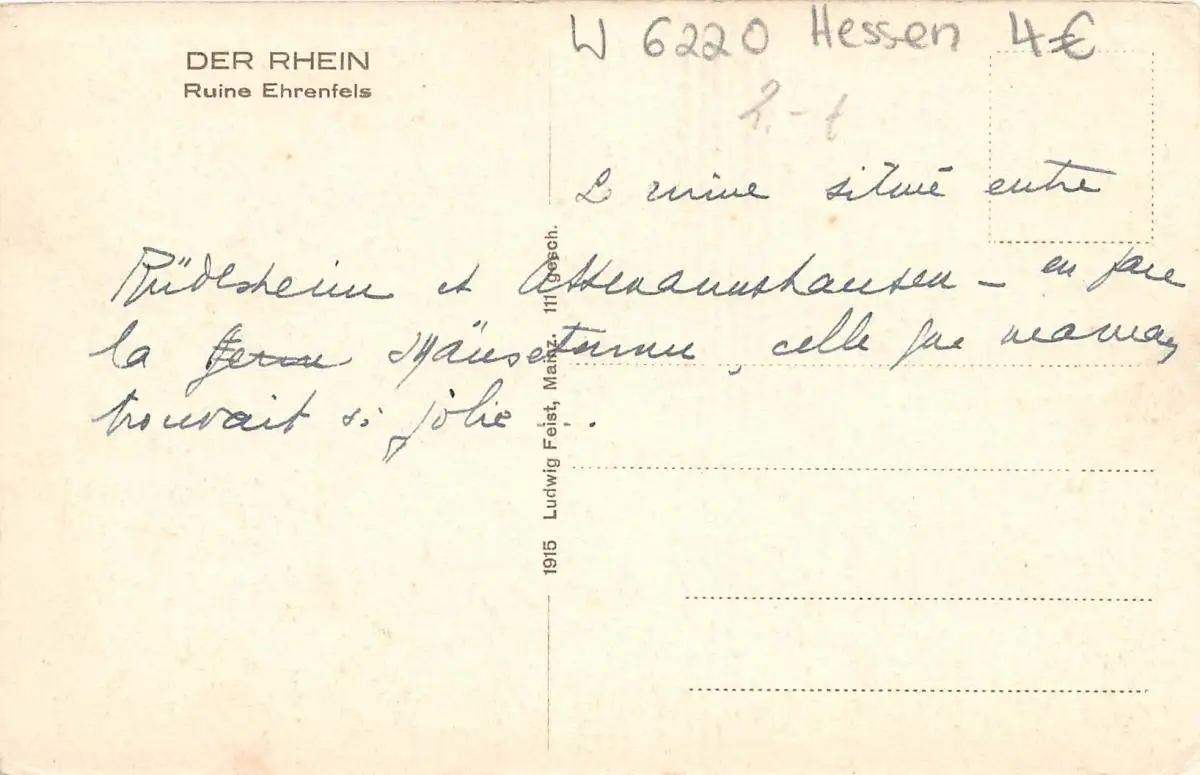 W 6220 Hessen 4€
DER RHEIN
Ruine Ehrenfels
2.-
ruine situé entre
Rüdesheim et Assmannshausen - en face
la Mäuseturm, celle que maman
trouvait si jolie ...
1915 Ludwig Feist, Mainz. 111 gesch.